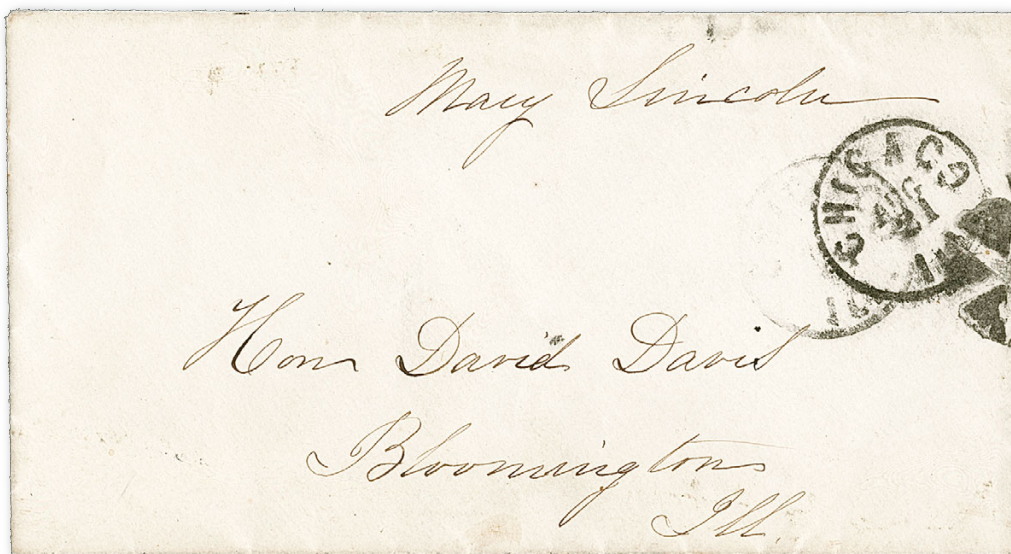 Mary Lincoln
CHICAGO
Hon David Davis
Bloomington
Ill.